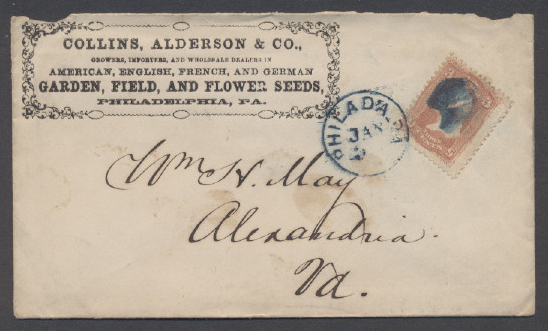 COLLINS, ALDERSON & CO.,
GROWERS, IMPORTERS, AND WHOLESALE DEALERS IN
AMERICAN, ENGLISH, FRENCH, AND GERMAN
GARDEN, FIELD, AND FLOWER SEEDS,
PHILADELPHIA, PA.
PHILAD'A. PA
JAN
Wm H. May
Alexandria.
Va.